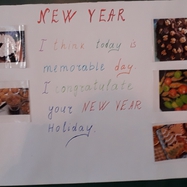 NEW YEAR
I think today is
memorable day.
I congratulate
your NEW YEAR
Holiday